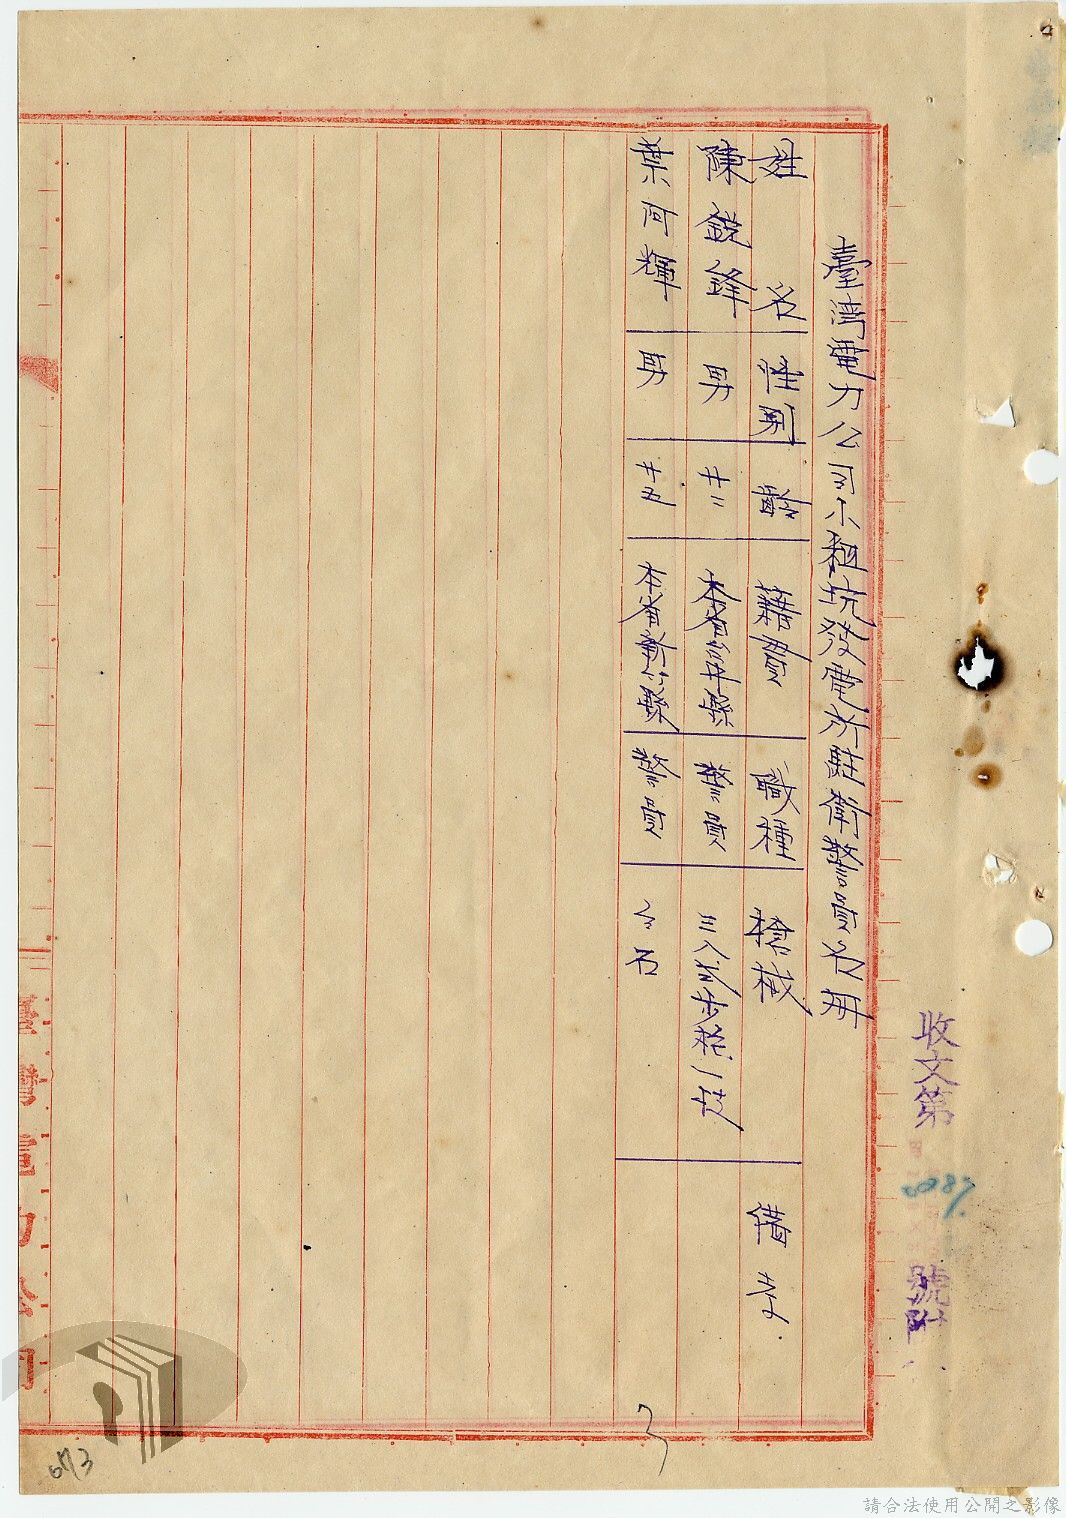 收文第 號附
臺湾電力公司小粗坑發電所駐衛警員名冊
姓名 性別 齡 籍貫 職種 槍械 備考
陳銳鋒 男 廿二 本省台中縣 警員 三八式步槍一枝
葉阿輝 男 廿五 本省新竹縣 警員 仝右
3
臺灣電力公司
請合法使用公開之影像